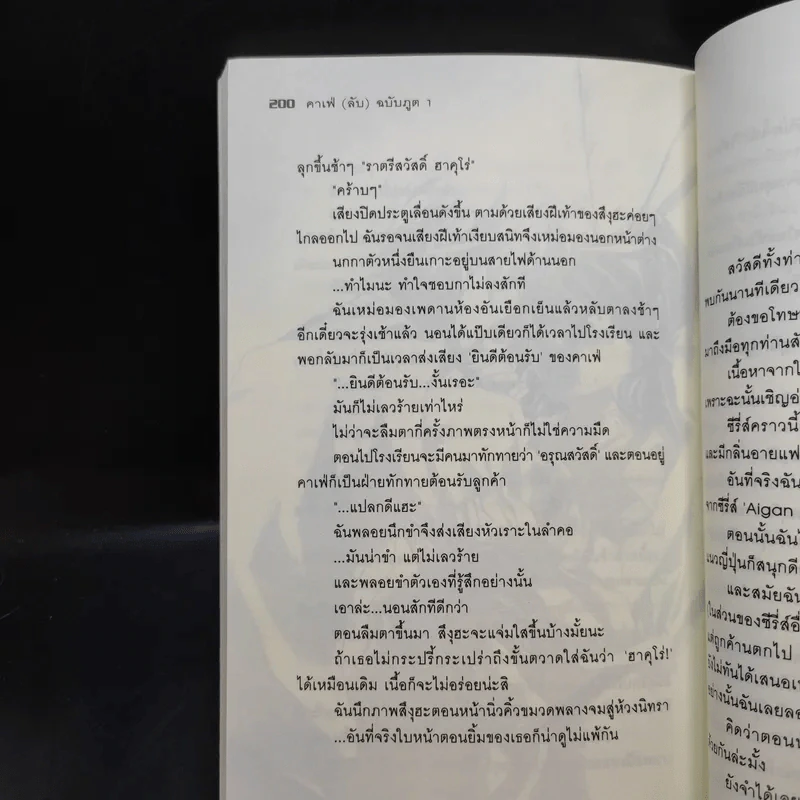 200 คาเฟ่ (ลับ) ฉบับภูต 1
ลุกขึ้นช้าๆ "ราตรีสวัสดิ์ ฮาคุโร่"
"คร้าบๆ"
เสียงปิดประตูเลื่อนดังขึ้น ตามด้วยเสียงฝีเท้าของสึงุฮะค่อยๆ
ไกลออกไป ฉันรอจนเสียงฝีเท้าเงียบสนิทจึงเหม่อมองนอกหน้าต่าง
นกกาตัวหนึ่งยืนเกาะอยู่บนสายไฟด้านนอก
...ทำไมนะ ทำใจชอบกาไม่ลงสักที
ฉันเหม่อมองเพดานห้องอันเยือกเย็นแล้วหลับตาลงช้าๆ
อีกเดี๋ยวจะรุ่งเช้าแล้ว นอนได้แป๊บเดียวก็ได้เวลาไปโรงเรียน และ
พอกลับมาก็เป็นเวลาส่งเสียง 'ยินดีต้อนรับ' ของคาเฟ่
"...ยินดีต้อนรับ...งั้นเรอะ"
มันก็ไม่เลวร้ายเท่าไหร่
ไม่ว่าจะลืมตากี่ครั้งภาพตรงหน้าก็ไม่ใช่ความมืด
ตอนไปโรงเรียนจะมีคนมาทักทายว่า 'อรุณสวัสดิ์' และตอนอยู่
คาเฟ่ก็เป็นฝ่ายทักทายต้อนรับลูกค้า
"...แปลกดีแฮะ"
ฉันพลอยนึกขำจึงส่งเสียงหัวเราะในลำคอ
...มันน่าขำ แต่ไม่เลวร้าย
และพลอยขำตัวเองที่รู้สึกอย่างนั้น
เอาล่ะ...นอนสักทีดีกว่า
ตอนลืมตาขึ้นมา สึงุฮะจะแจ่มใสขึ้นบ้างมั้ยนะ
ถ้าเธอไม่กระปรี้กระเปร่าถึงขั้นตวาดใส่ฉันว่า 'ฮาคุโร่!'
ได้เหมือนเดิม เนื้อก็จะไม่อร่อยน่ะสิ
ฉันนึกภาพสึงุฮะตอนหน้านิ่วคิ้วขมวดพลางจมสู่ห้วงนิทรา
...อันที่จริงใบหน้าตอนยิ้มของเธอก็น่าดูไม่แพ้กัน
สวัสดีทั้งท่า
พบกันนานทีเดียว
ต้องขอโทษ
มาถึงมือทุกท่าน
เนื้อหาจากใ
เพราะฉะนั้นเชิญ
ซีรี่ส์คราวนี้
และมีกลิ่นอายแฟ
อันที่จริงฉัน
จากซีรี่ส์ 'Aigan
ตอนนั้นฉัน
แนวญี่ปุ่นก็สนุกดี
และสมัยฉัน
ในส่วนของซีรี่ส์อื่
แต่ถูกค้านตกไป
ยังไม่ทันได้เสนอ
อย่างนั้นฉันเลยลอ
คิดว่าตอน
ด้วยกันล่ะมั้ง
ยังจำได้